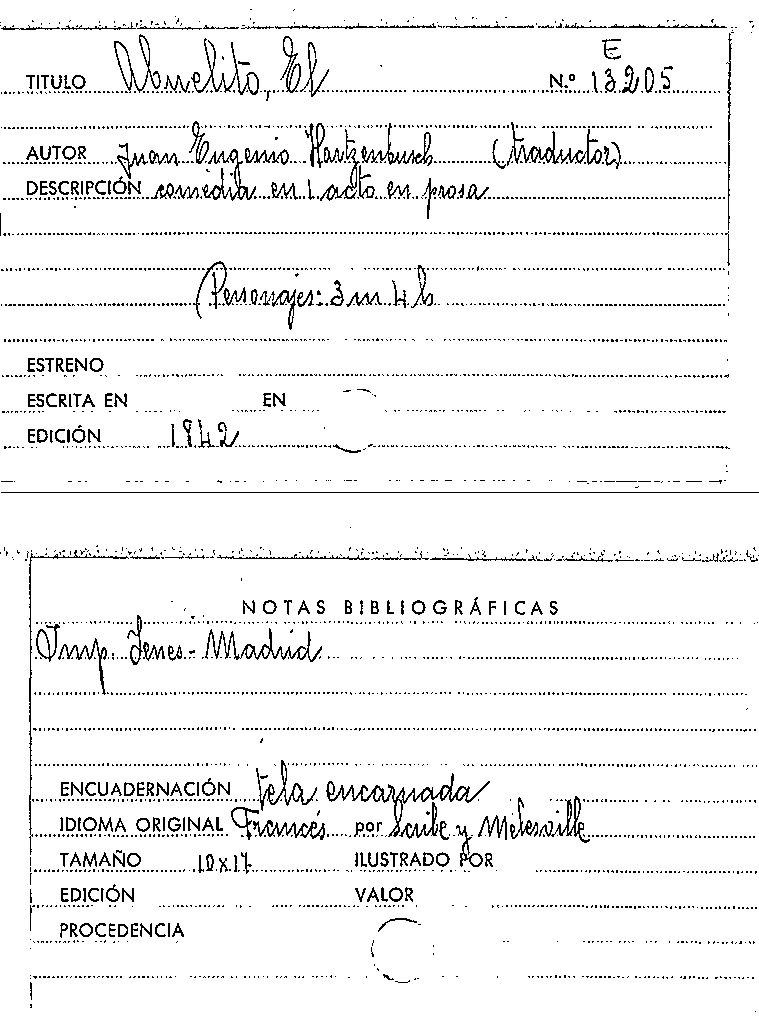 E
TITULO Abuelito, El N.º 13205
AUTOR Juan Eugenio Hartzenbusch (traductor)
DESCRIPCIÓN comedia en 1 acto en prosa
(Personajes: 3 m 4 h
ESTRENO
ESCRITA EN EN
EDICIÓN 1842
NOTAS BIBLIOGRÁFICAS
Imp. Yenes - Madrid
ENCUADERNACIÓN tela encarnada
IDIOMA ORIGINAL Francés por Scribe y Melesville
TAMAÑO 10x17 ILUSTRADO POR
EDICIÓN VALOR
PROCEDENCIA